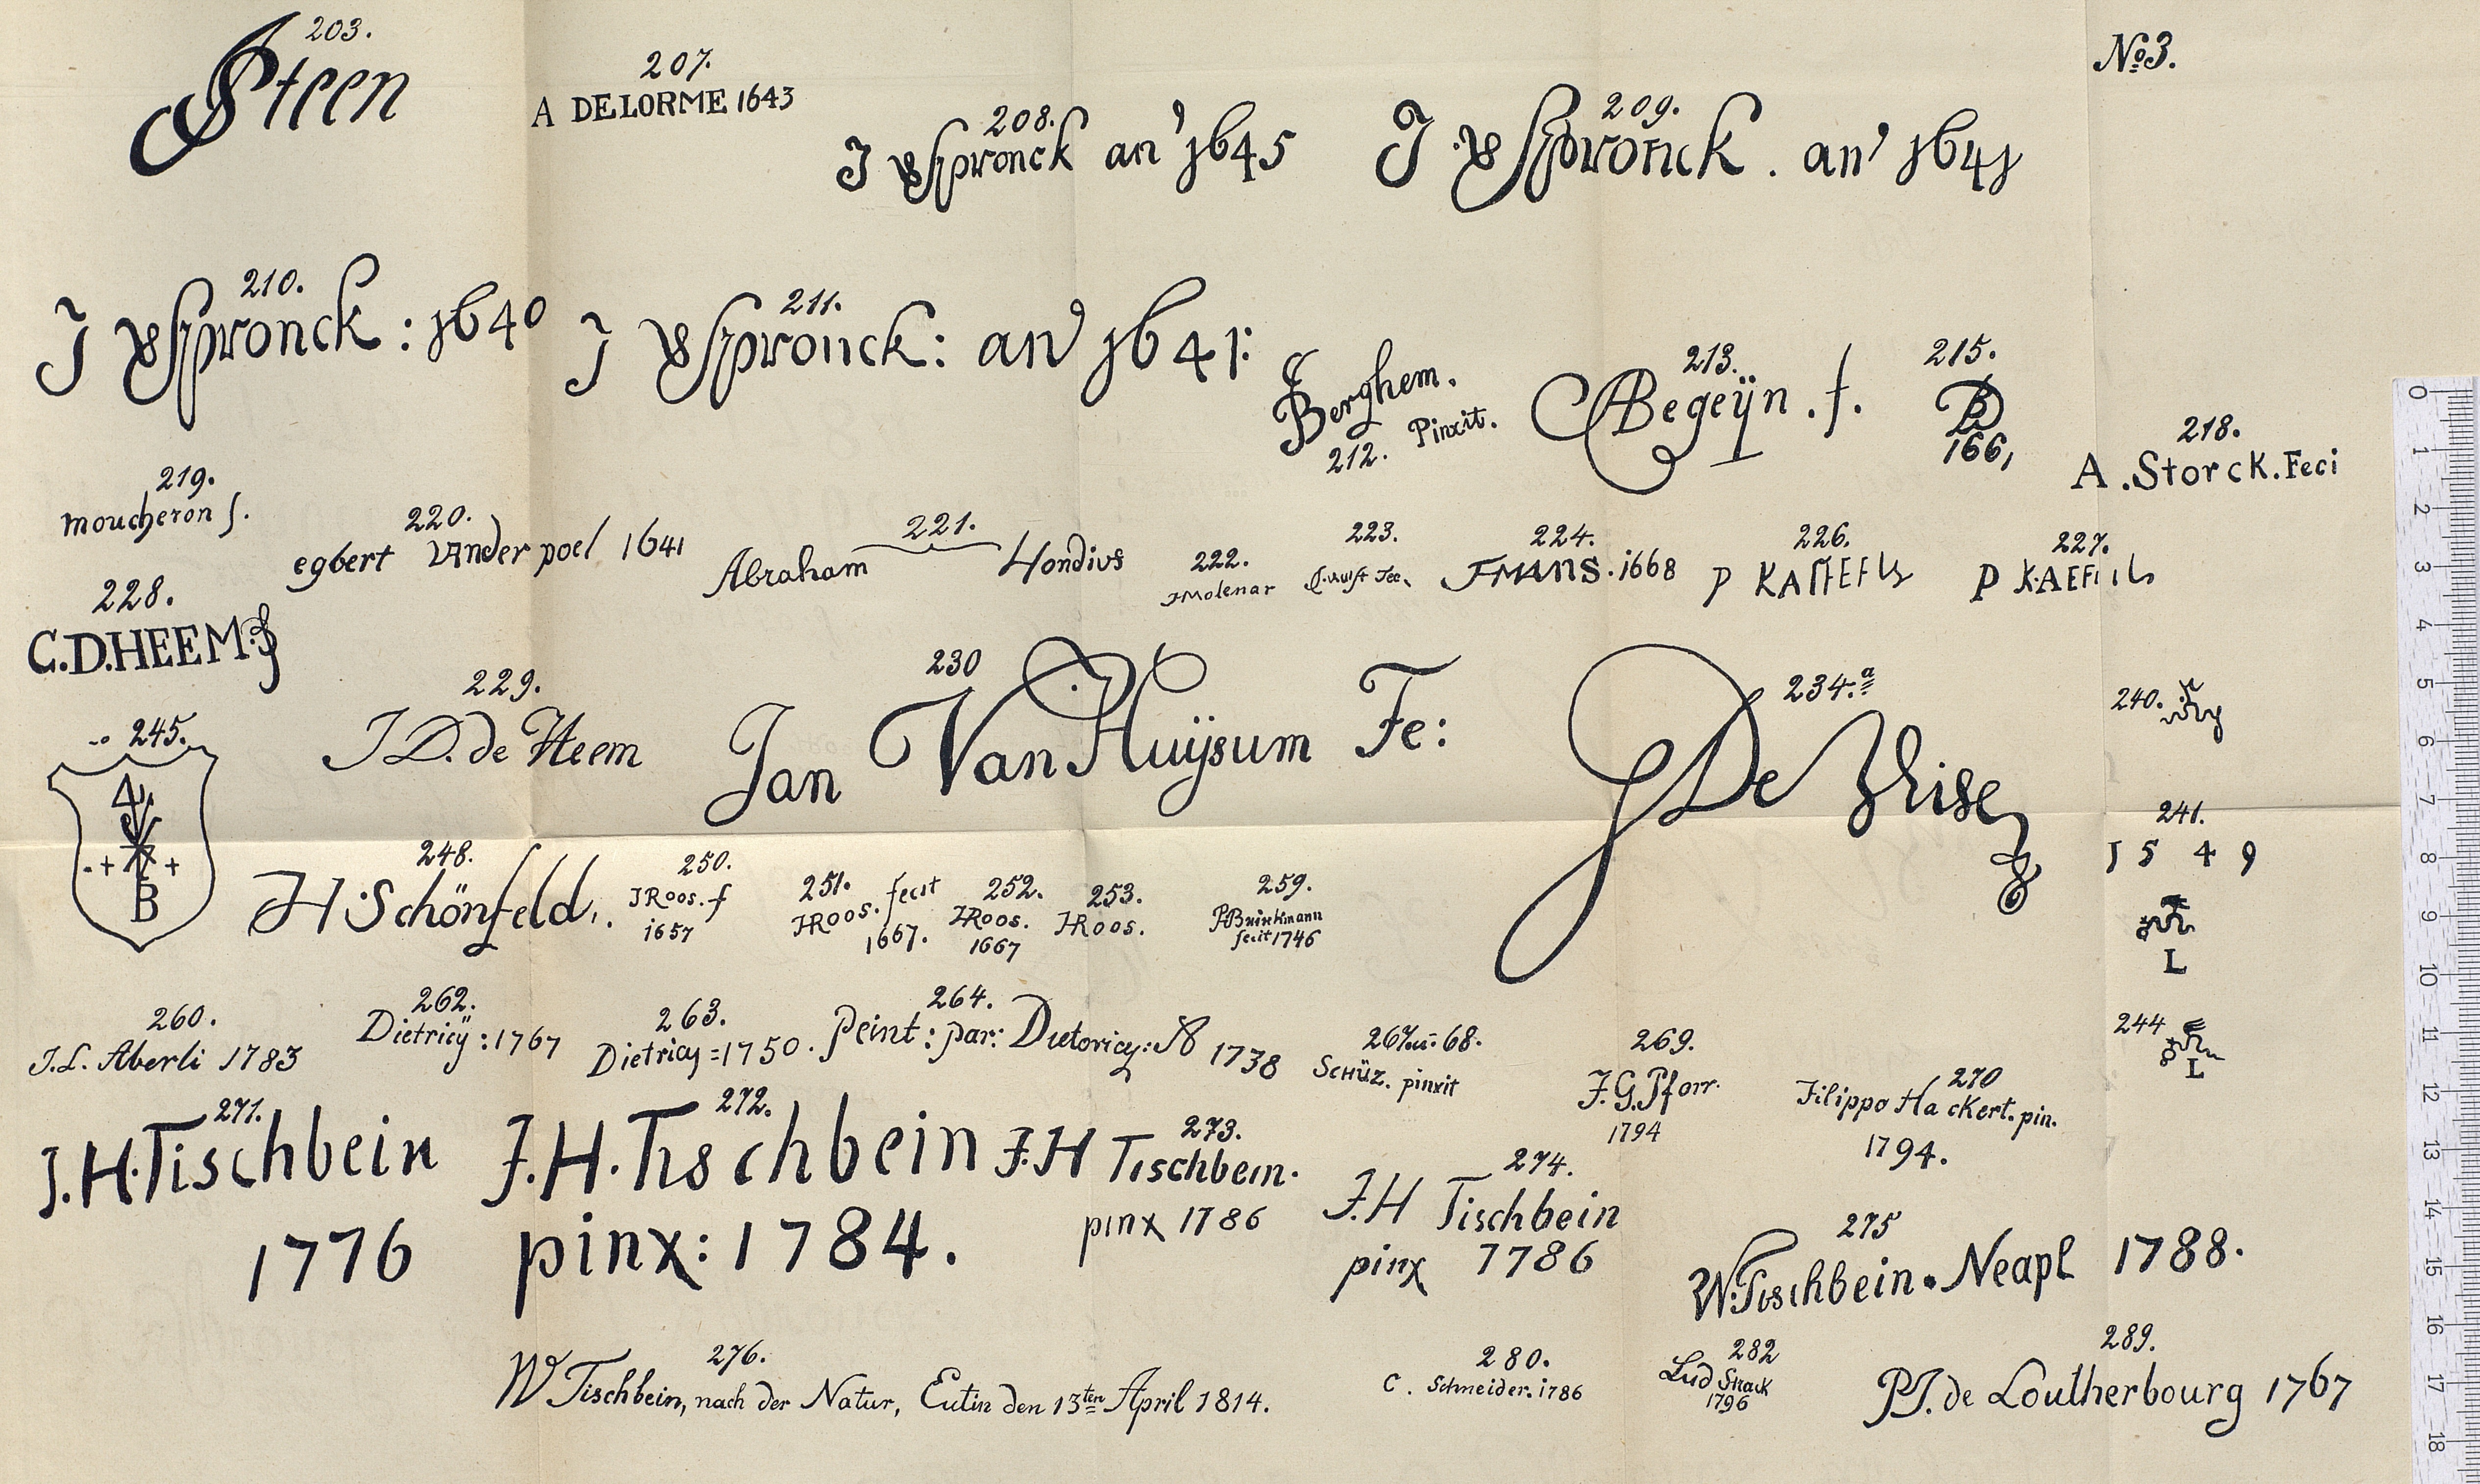 203.
Steen
207.
A DELORME 1643
208.
J VSpronck an' 1645
209.
J. VSpronck. an' 1641
No 3.
210.
J VSpronck: 1640
211.
J VSpronck: an' 1641:
Berghem.
212. Pinxit.
213.
CABegeÿn. f.
215.
166,
218.
A. Storck. Feci
219.
moucheron f.
220.
egbert vander poel 1641
221.
Abraham Hondius
222.
JMolenar
223.
224.
FMANS. 1668
226.
P KAffEEls
227.
P KAEF
228.
C.D.HEEM. f
229.
J D. de Heem
230
Jan Van Huÿsum Fe:
234.a
J De
240.
241.
1 5 4 9
L
244
L
245.
4
B
248.
H. Schönfeld.
250.
JRoos. f
1657
251.
JRoos. fecit
1667.
252.
JRoos.
1667
253.
JRoos.
259.
PBrinkmann
fecit 1746
260.
J.L. Aberli 1783
262.
Dietricÿ: 1767
263.
Dietricy = 1750.
264.
Peint: par: Dietericy: 1738
267 u: 68.
SCHÜZ. pinxit
269.
J.G. Pforr.
1794
270
Filippo Hackert. pin.
1794.
271.
J.H. Tischbein
1776
272.
J.H. Tischbein
pinx: 1784.
273.
J.H Tischbein.
pinx 1786
274.
J.H Tischbein
pinx 1786
275
W. Tischbein. Neapl 1788.
276.
W Tischbein, nach der Natur, Eutin den 13ten April 1814.
280.
C. Schneider. 1786
282
Lud Strack
1796
289.
P.J. de Loutherbourg 1767
0
1
2
3
4
5
6
7
8
9
10
11
12
13
14
15
16
17
18